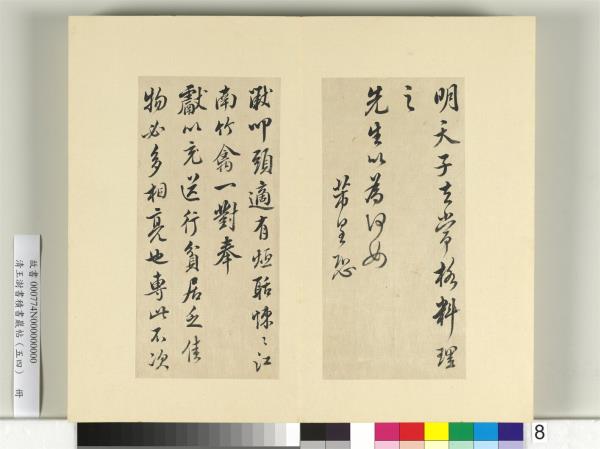 明天子去常格料理
之
先生以為何如
芾皇恐
黻叩頭適有煩聒悚〻江
南竹禽一對奉
獻以充送行貧居乏佳
物必多相亮也專此不次
故書 000774N000000000
清王澍書積書巖帖（五四） 冊
8